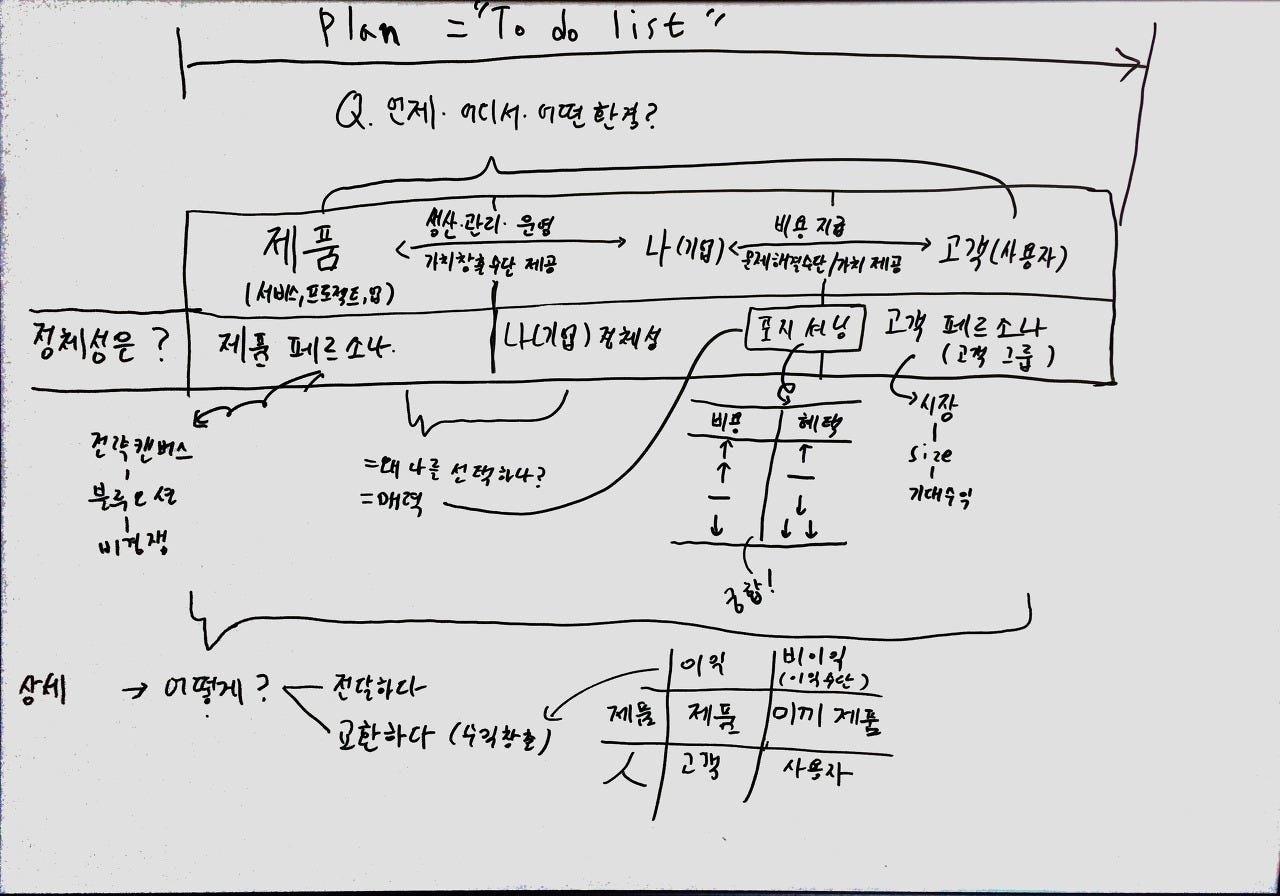 Plan = "To do list"
Q. 언제. 어디서. 어떤 한결?
제품
(서비스, 프로젝트, 업)
생산·관리·운영
가치창출수단 제공
나(기업)
비용 지급
문제해결수단/가치 제공
고객(사용자)
정체성은?
제품 페르소나.
나(기업) 정체성
포지셔닝
고객 페르소나
(고객 그룹)
전략캔버스
블루오션
비경쟁
=왜 나를 선택하나?
=매력
비용 혜택
↑ ↑
↑ —
— ↓
↓ ↓↓
궁합!
시장
size
기대수익
상세 → 어떻게?
전달하다
교환하다 (수익창출)
이익 비이익
(이익수단)
제품 제품 미끼 제품
人 고객 사용자